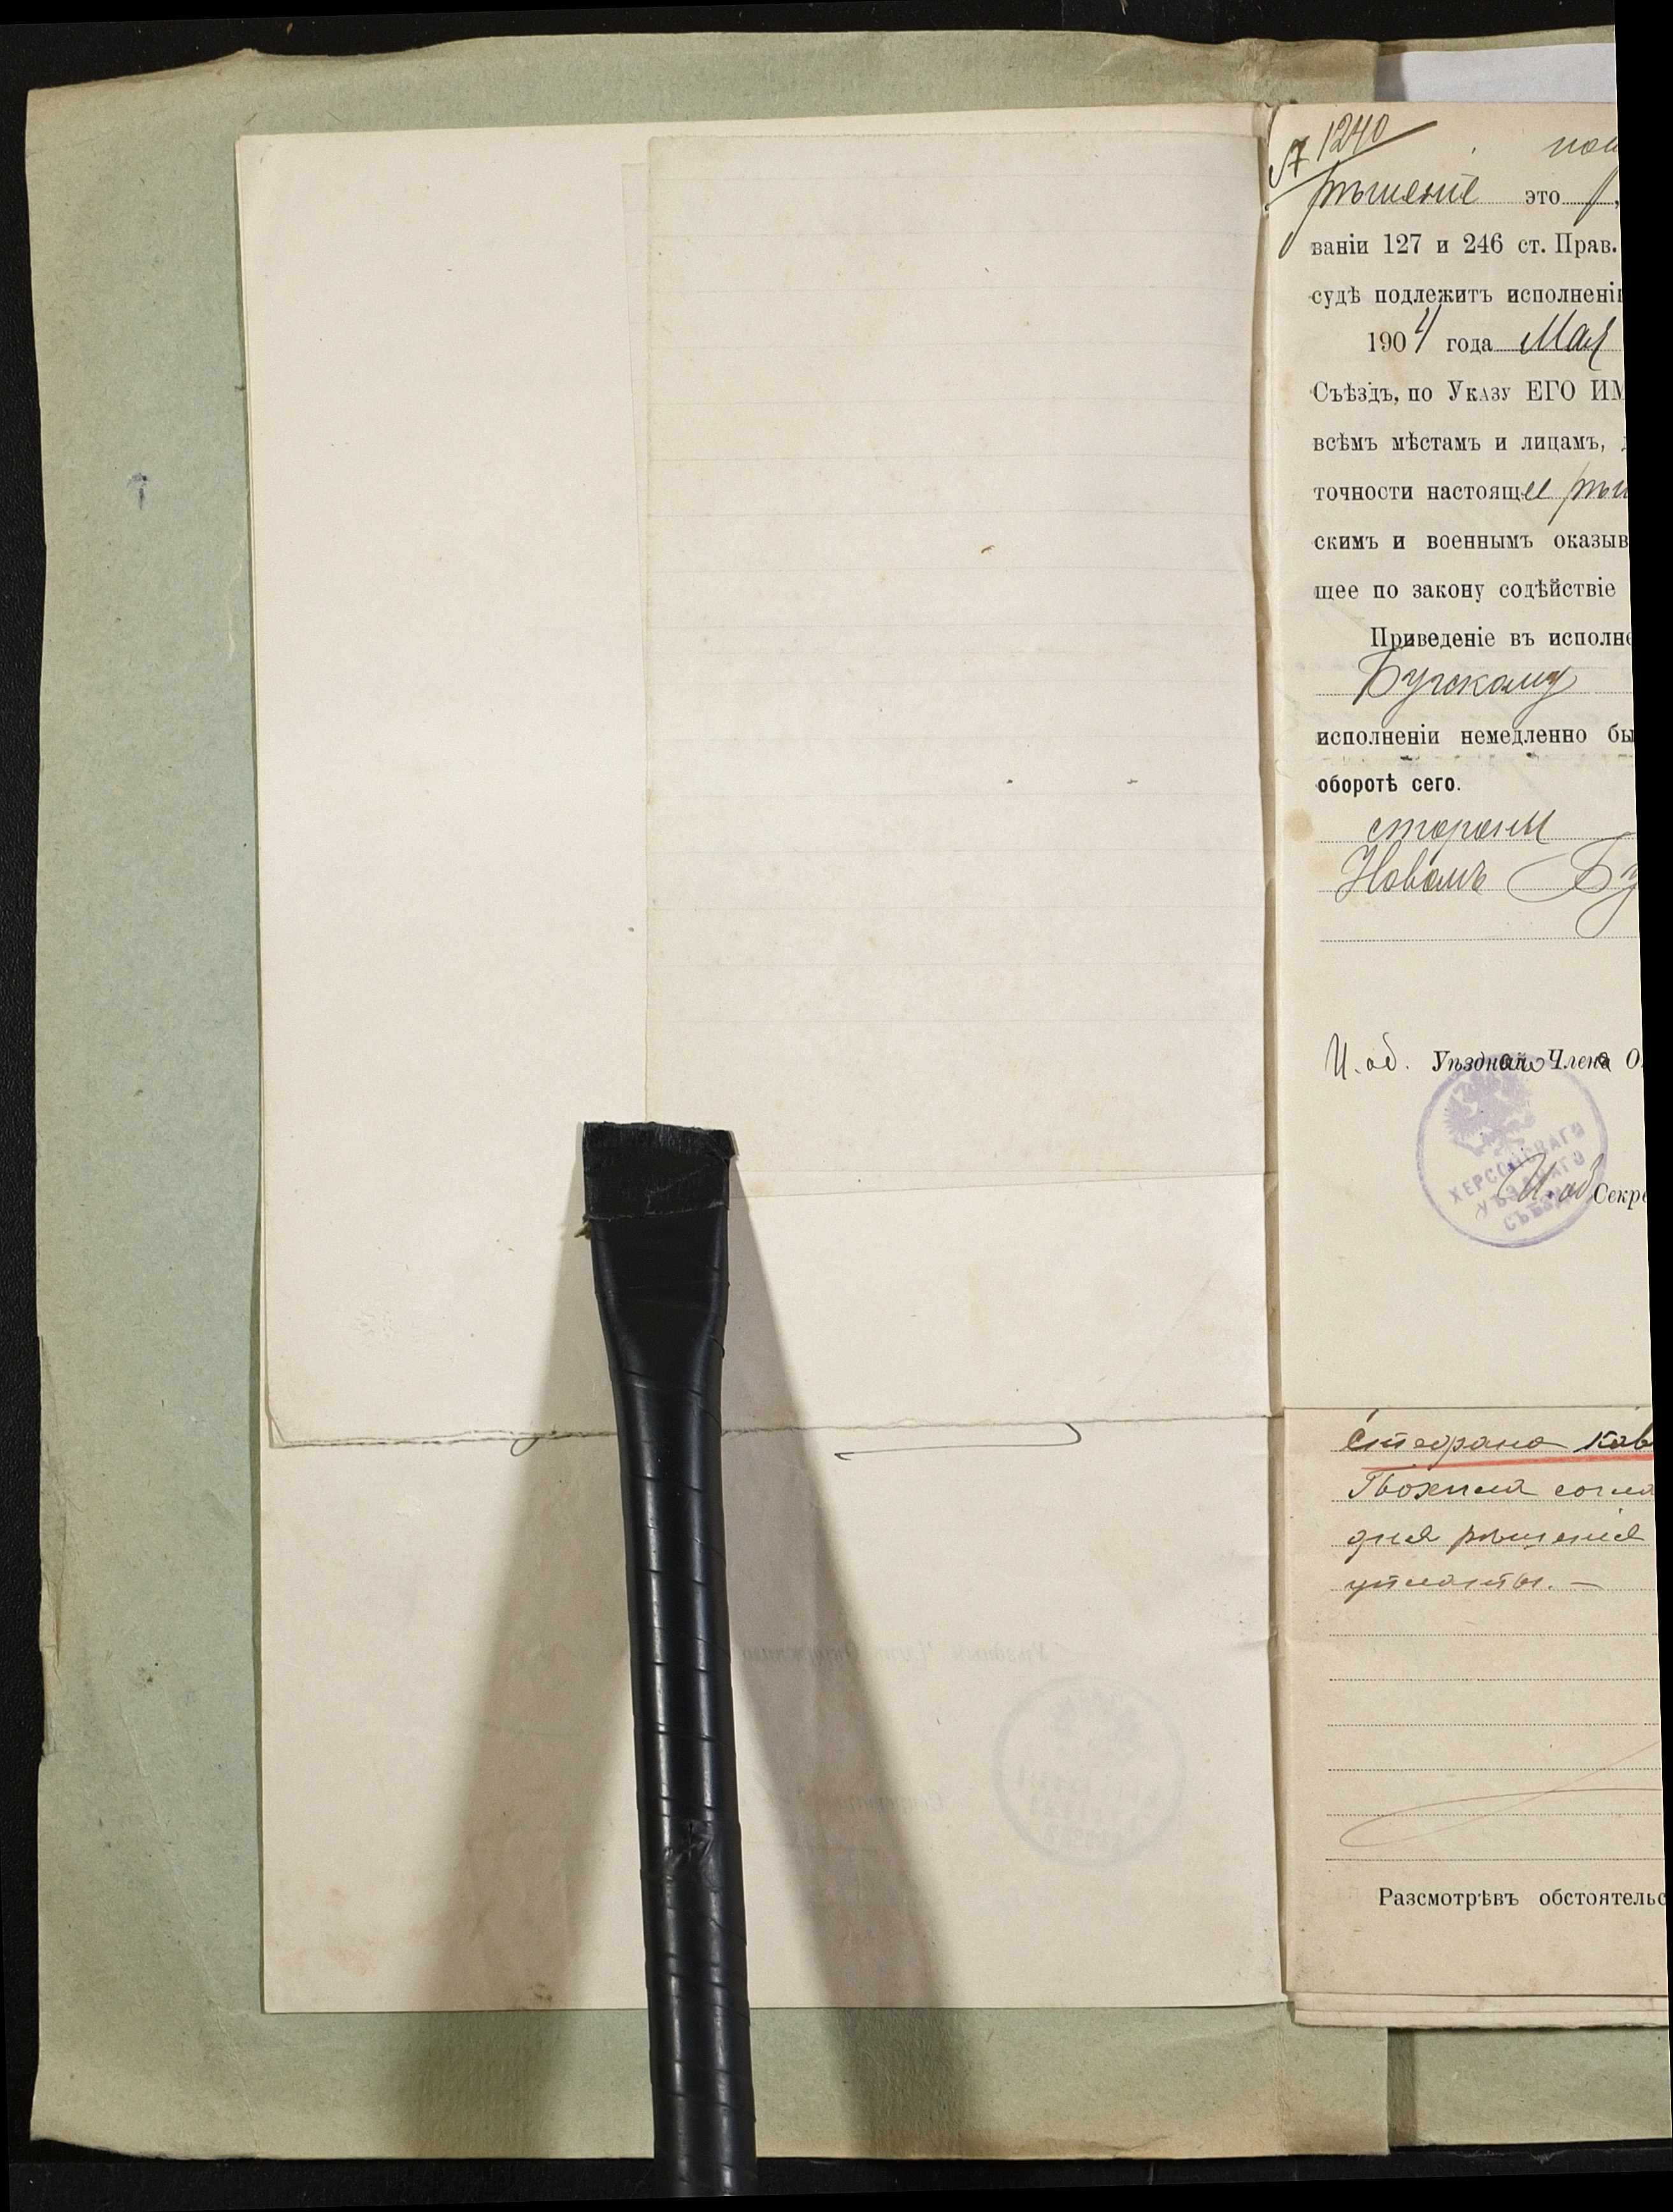 № 1240
рѣшеніе это
ваніи 127 и 246 ст. Прав.
судѣ подлежитъ исполнені
1904 года Мая
Съѣздъ, по Указу ЕГО ИМ
всѣмъ мѣстамъ и лицамъ,
точности настоящее рѣш
скимъ и военнымъ оказыв
щее по закону содѣйствіе
Приведеніе въ исполне
Бугскому
исполненіи немедленно бы
оборотѣ сего.
стороны
Новомъ Бу
И. об. Уѣзднаго Члена О
ХЕРСОНСКАГО
УѢЗДНАГО
СЪѢЗДА
И. об Секре
Рѣ
дня рѣшенія
уплаты. —
Разсмотрѣвъ обстоятельс